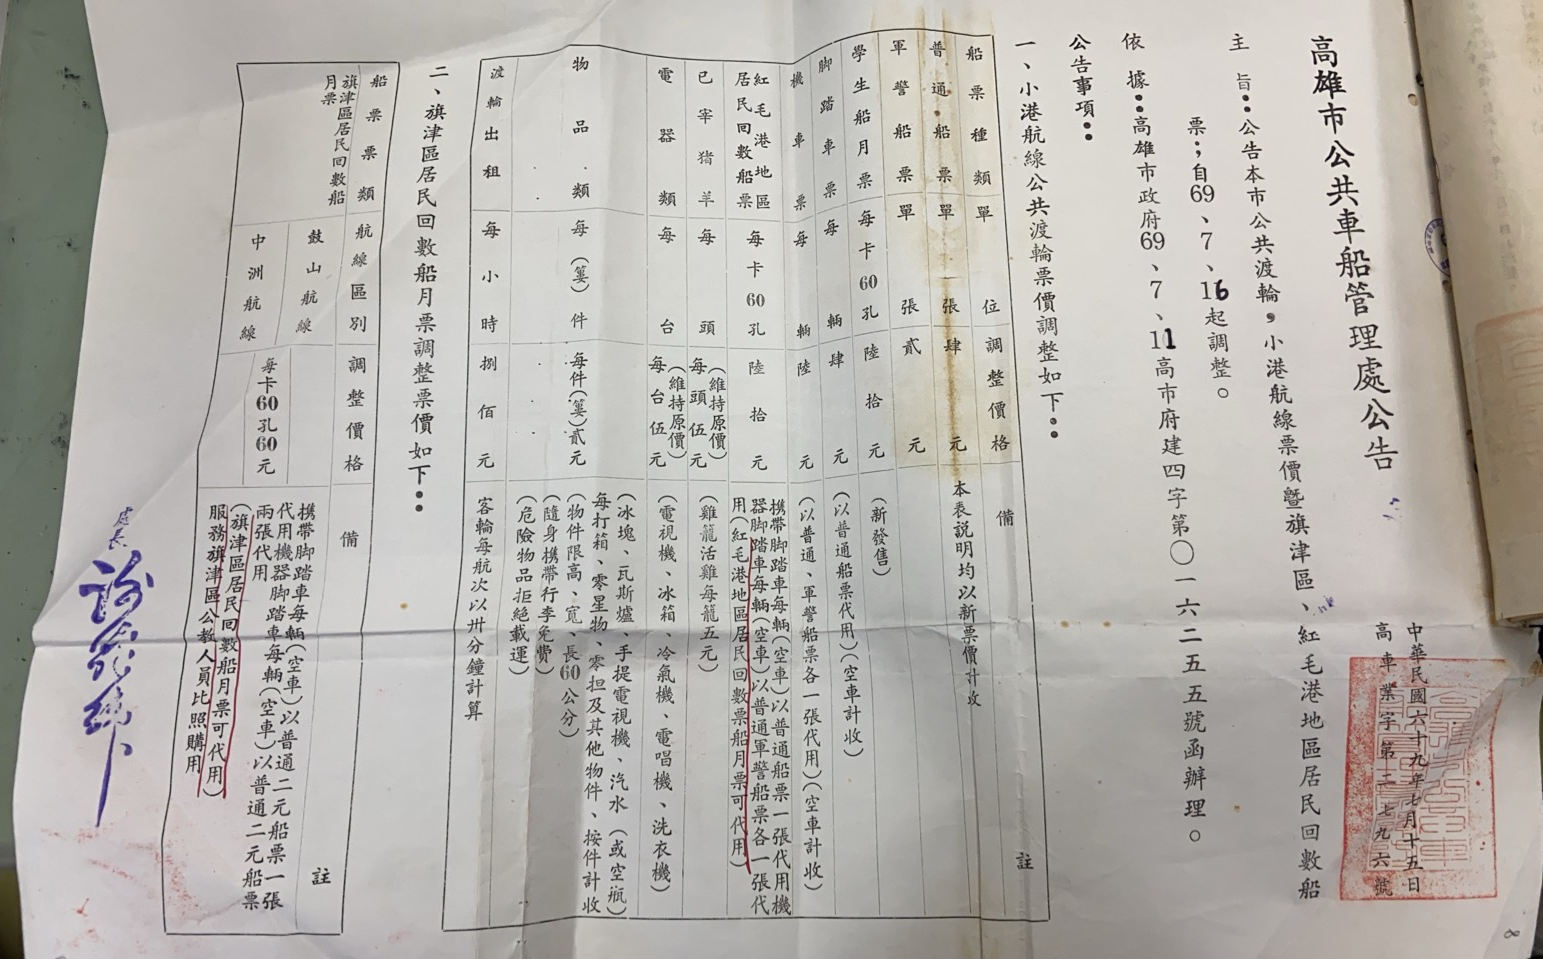 高雄市公共車船管理處公告
中華民國六十九年七月十五日
高車業字第二七九六號
主旨：公告本市公共渡輪，小港航線票價暨旗津區、紅毛港地區居民回數船
票；自69、7、16起調整。
依據：高雄市政府69、7、11高市府建四字第〇一六二五五號函辦理。
公告事項：
一、小港航線公共渡輪票價調整如下：
船票種類 單位 調整價格 備註
普通船票 單張 肆元 本表說明均以新票價計收
軍警船票 單張 貳元
學生船月票 每卡60孔 陸拾元 （新發售）
腳踏車票 每輛 肆元 （以普通船票代用）（空車計收）
機車票 每輛 陸元 （以普通、軍警船票各一張代用）（空車計收）
紅毛港地區
居民回數船票
每卡60孔 陸拾元
攜帶脚踏車每輛（空車）以普通船票一張代用機
器脚踏車每輛（空車）以普通軍警船票各一張代
用（紅毛港地區居民回數票船月票可代用）
已宰猪羊 每頭
（維持原價）
每頭伍元
（雞籠活雞每籠五元）
電器類 每台
（維持原價）
每台伍元
（電視機、冰箱、冷氣機、電唱機、洗衣機）
物品類 每（簍）件 每件（簍）貳元
（冰塊、瓦斯爐、手提電視機、汽水（或空瓶）
每打箱、零星物、零担及其他物件、按件計收
（物件限高、寬、長60公分）
（隨身携帶行李免費）
（危險物品拒絕載運）
渡輪出租 每小時 捌佰元 客輪每航次以卅分鐘計算
二、旗津區居民回數船月票調整票價如下：
船票類 航線區別 調整價格 備註
旗津區居民回數船
月票
鼓山航線
中洲航線
每卡60孔60元
携帶脚踏車每輛（空車）以普通二元船票一張
代用機器脚踏車每輛（空車）以普通二元船票
兩張代用
（旗津區居民回數船月票可代用）
服務旗津區公教人員比照購用
處長
8